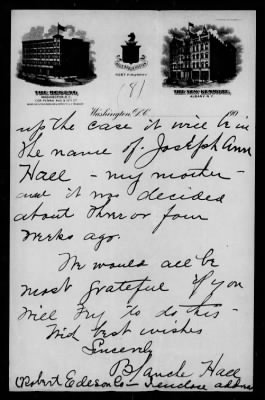 (8)
THE REGENT,
WASHINGTON, D.C.
THE NEW KENMORE,
ALBANY, N.Y.
Washington, D.C. 190
up the case it will be in
the name of Joseph Ann
Hall - my mother -
and it was decided
about three or four
weeks ago.
We would all be
most grateful if you
will try to do this -
With best wishes
Sincerely
Blanche Hall
Robert Edeson Co - I enclose address